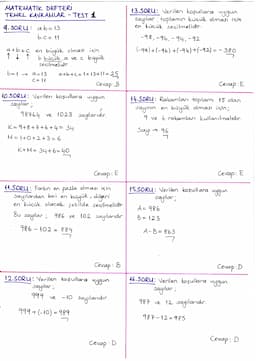 MATEMATİK DEFTERİ
TEMEL KAVRAMLAR - TEST 1
9.SORU: a.b=13
b.c=11
a+b+c en büyük olması için
b küçük a ve c büyük
seçilmelidir.
b=1 → a=13
c=11
a+b+c=1+13+11=25
Cevap: B
10.SORU: Verilen koşullara uygun
sayılar;
98764 ve 1023 sayılarıdır.
K=9+8+7+6+4=34
M=1+0+2+3=6
K+M=34+6=40
Cevap: E
11.SORU: Farkın en fazla olması için
sayılardan biri en büyük, diğeri
en küçük olacak şekilde seçilmelidir.
Bu sayılar; 986 ve 102 sayılarıdır.
986-102=884
Cevap: B
12.SORU: Verilen koşullara uygun
sayılar;
999 ve -10 sayılarıdır.
999+(-10)=989
Cevap: D
13.SORU: Verilen koşullara uygun
sayılar, toplamın büyük olması için
seçilmelidir.
-98, -96, -94, -92
(-94)+(-96)+(-98)+(-92)=-380
Cevap: E
14.SORU: Rakamları toplamı 15 olan
sayının en büyük olması için;
9 ve 6 rakamları kullanılmalıdır.
Sayı → 96
Cevap: E
15.SORU: Verilen koşullara uygun
sayılar;
A=986
B=123
A-B=863
Cevap: D
16.SORU: Verilen koşullara uygun
sayılar;
987 ve 12 sayılarıdır.
987-12=975
Cevap: D